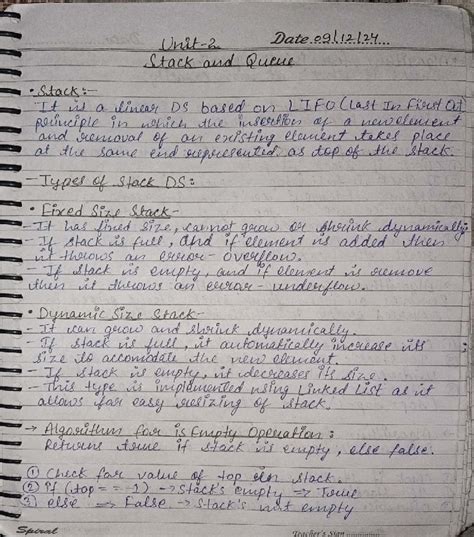 Unit-2
Date 09/12/24
Stack and Queue
• Stack:-
It is a linear DS based on LIFO (Last In First Out
principle in which the insertion of a new element
and removal of an existing element takes place
at the same end represented as top of the stack.
- Types of Stack DS:
• Fixed Size Stack-
- It has fixed size, cannot grow or shrink dynamically.
- If stack is full, and if element is added then
it throws an error - overflow.
- If stack is empty, and if element is remove
then it throws an error - underflow.
• Dynamic Size Stack-
- It can grow and shrink dynamically.
- If stack is full, it automatically increase its
size to accomodate the new element.
- If stack is empty, it decreases its size.
- This type is implemented using Linked List as it
allows for easy resizing of stack.
→ Algorithm for is Empty Operation:
Returns true if stack is empty, else false.
① Check for value of top in stack.
② if (top == -1) → Stack's empty ⇒ True
③ else ⇒ False → Stack's not empty
Spiral
Teacher's Sign